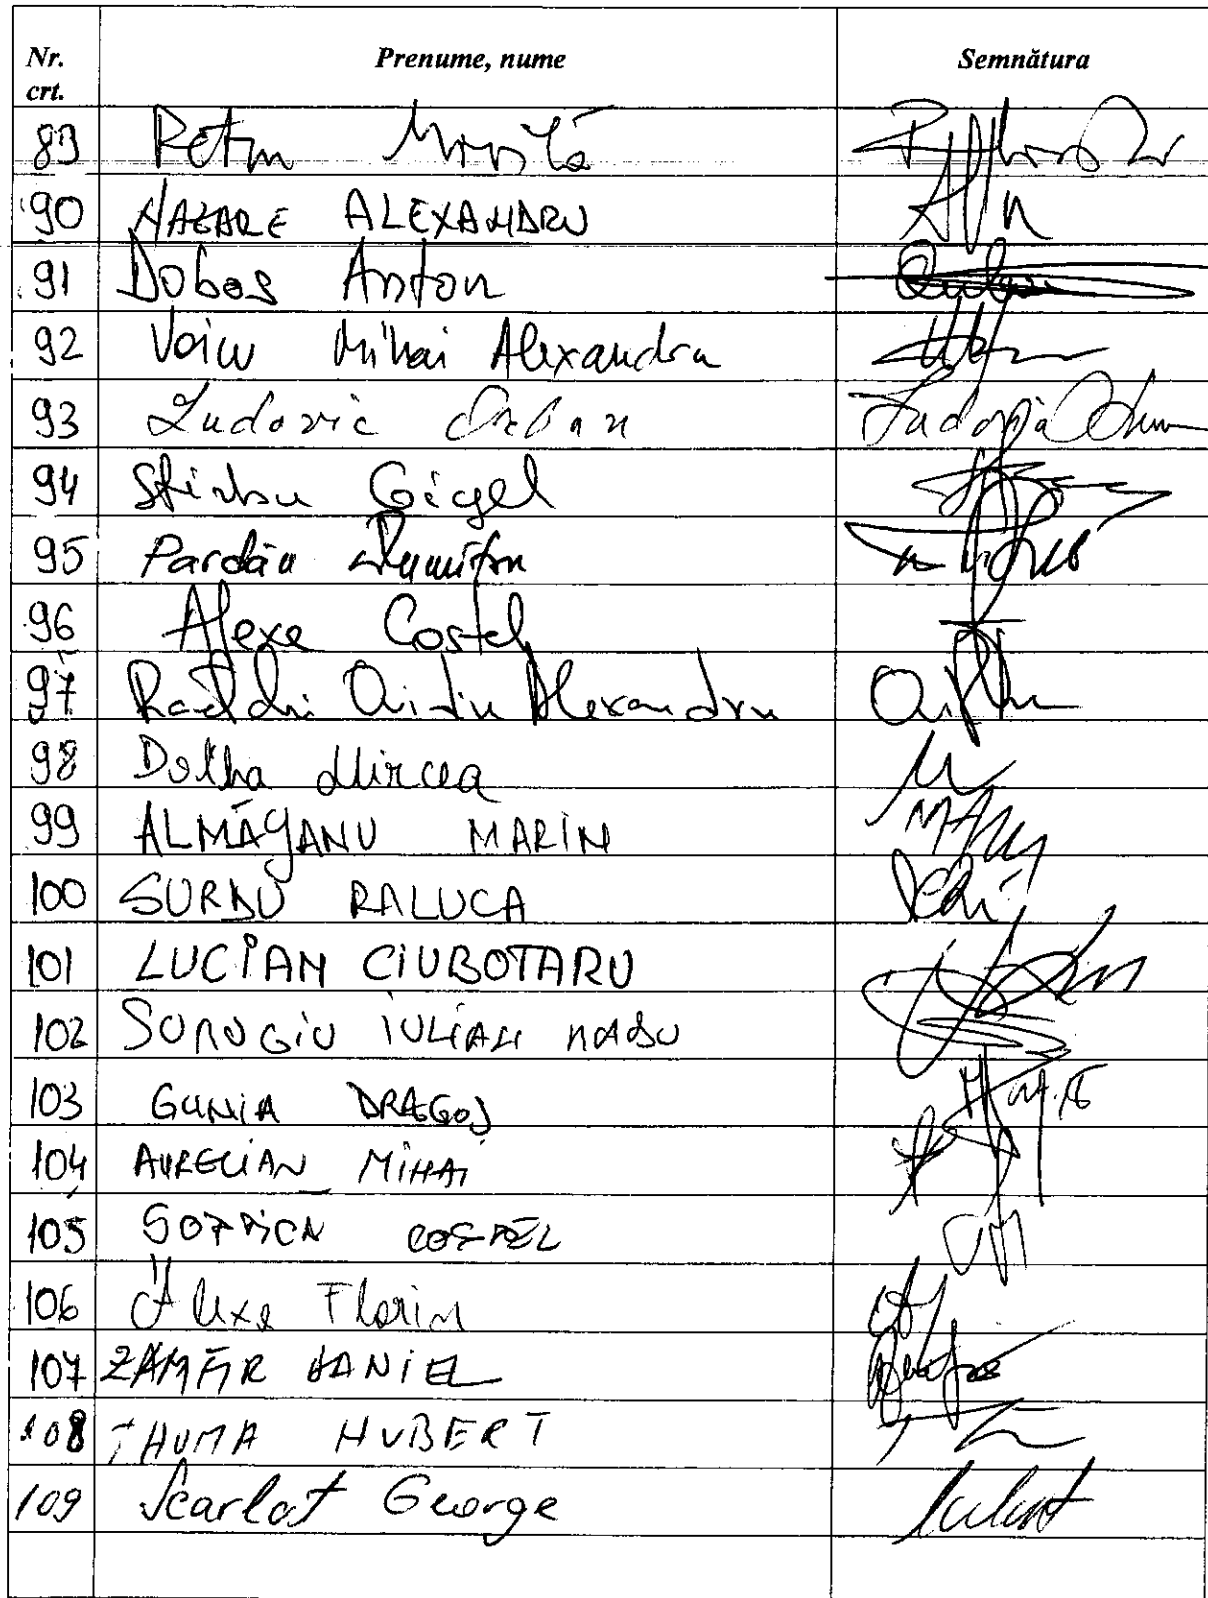 Nr. crt. Prenume, nume Semnătura
89 Petru
90 NAZARE ALEXANDRU
91 Dobos Anton
92 Voicu Mihai Alexandru
93 Ludovic Orban Ludovic Orban
94 Stirbu Gigel
95 Pardău Dumitru
96 Alexe Costel
97 Raețchi Ovidiu Alexandru
98 Dolha Mircea
99 ALMĂJANU MARIN
100 SURDU RALUCA
101 LUCIAN CIUBOTARU
102 SURUGIU IULIAN RADU
103 GUNIA DRAGOȘ
104 AURELIAN MIHAI
105 ȘOPTICĂ COSTEL
106 Alexe Florin
107 ZAMFIR DANIEL
108 THUMA HUBERT
109 Scarlat George